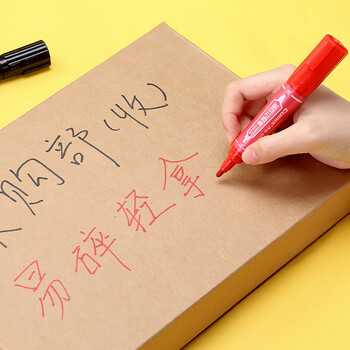 购部(收)
易碎轻拿